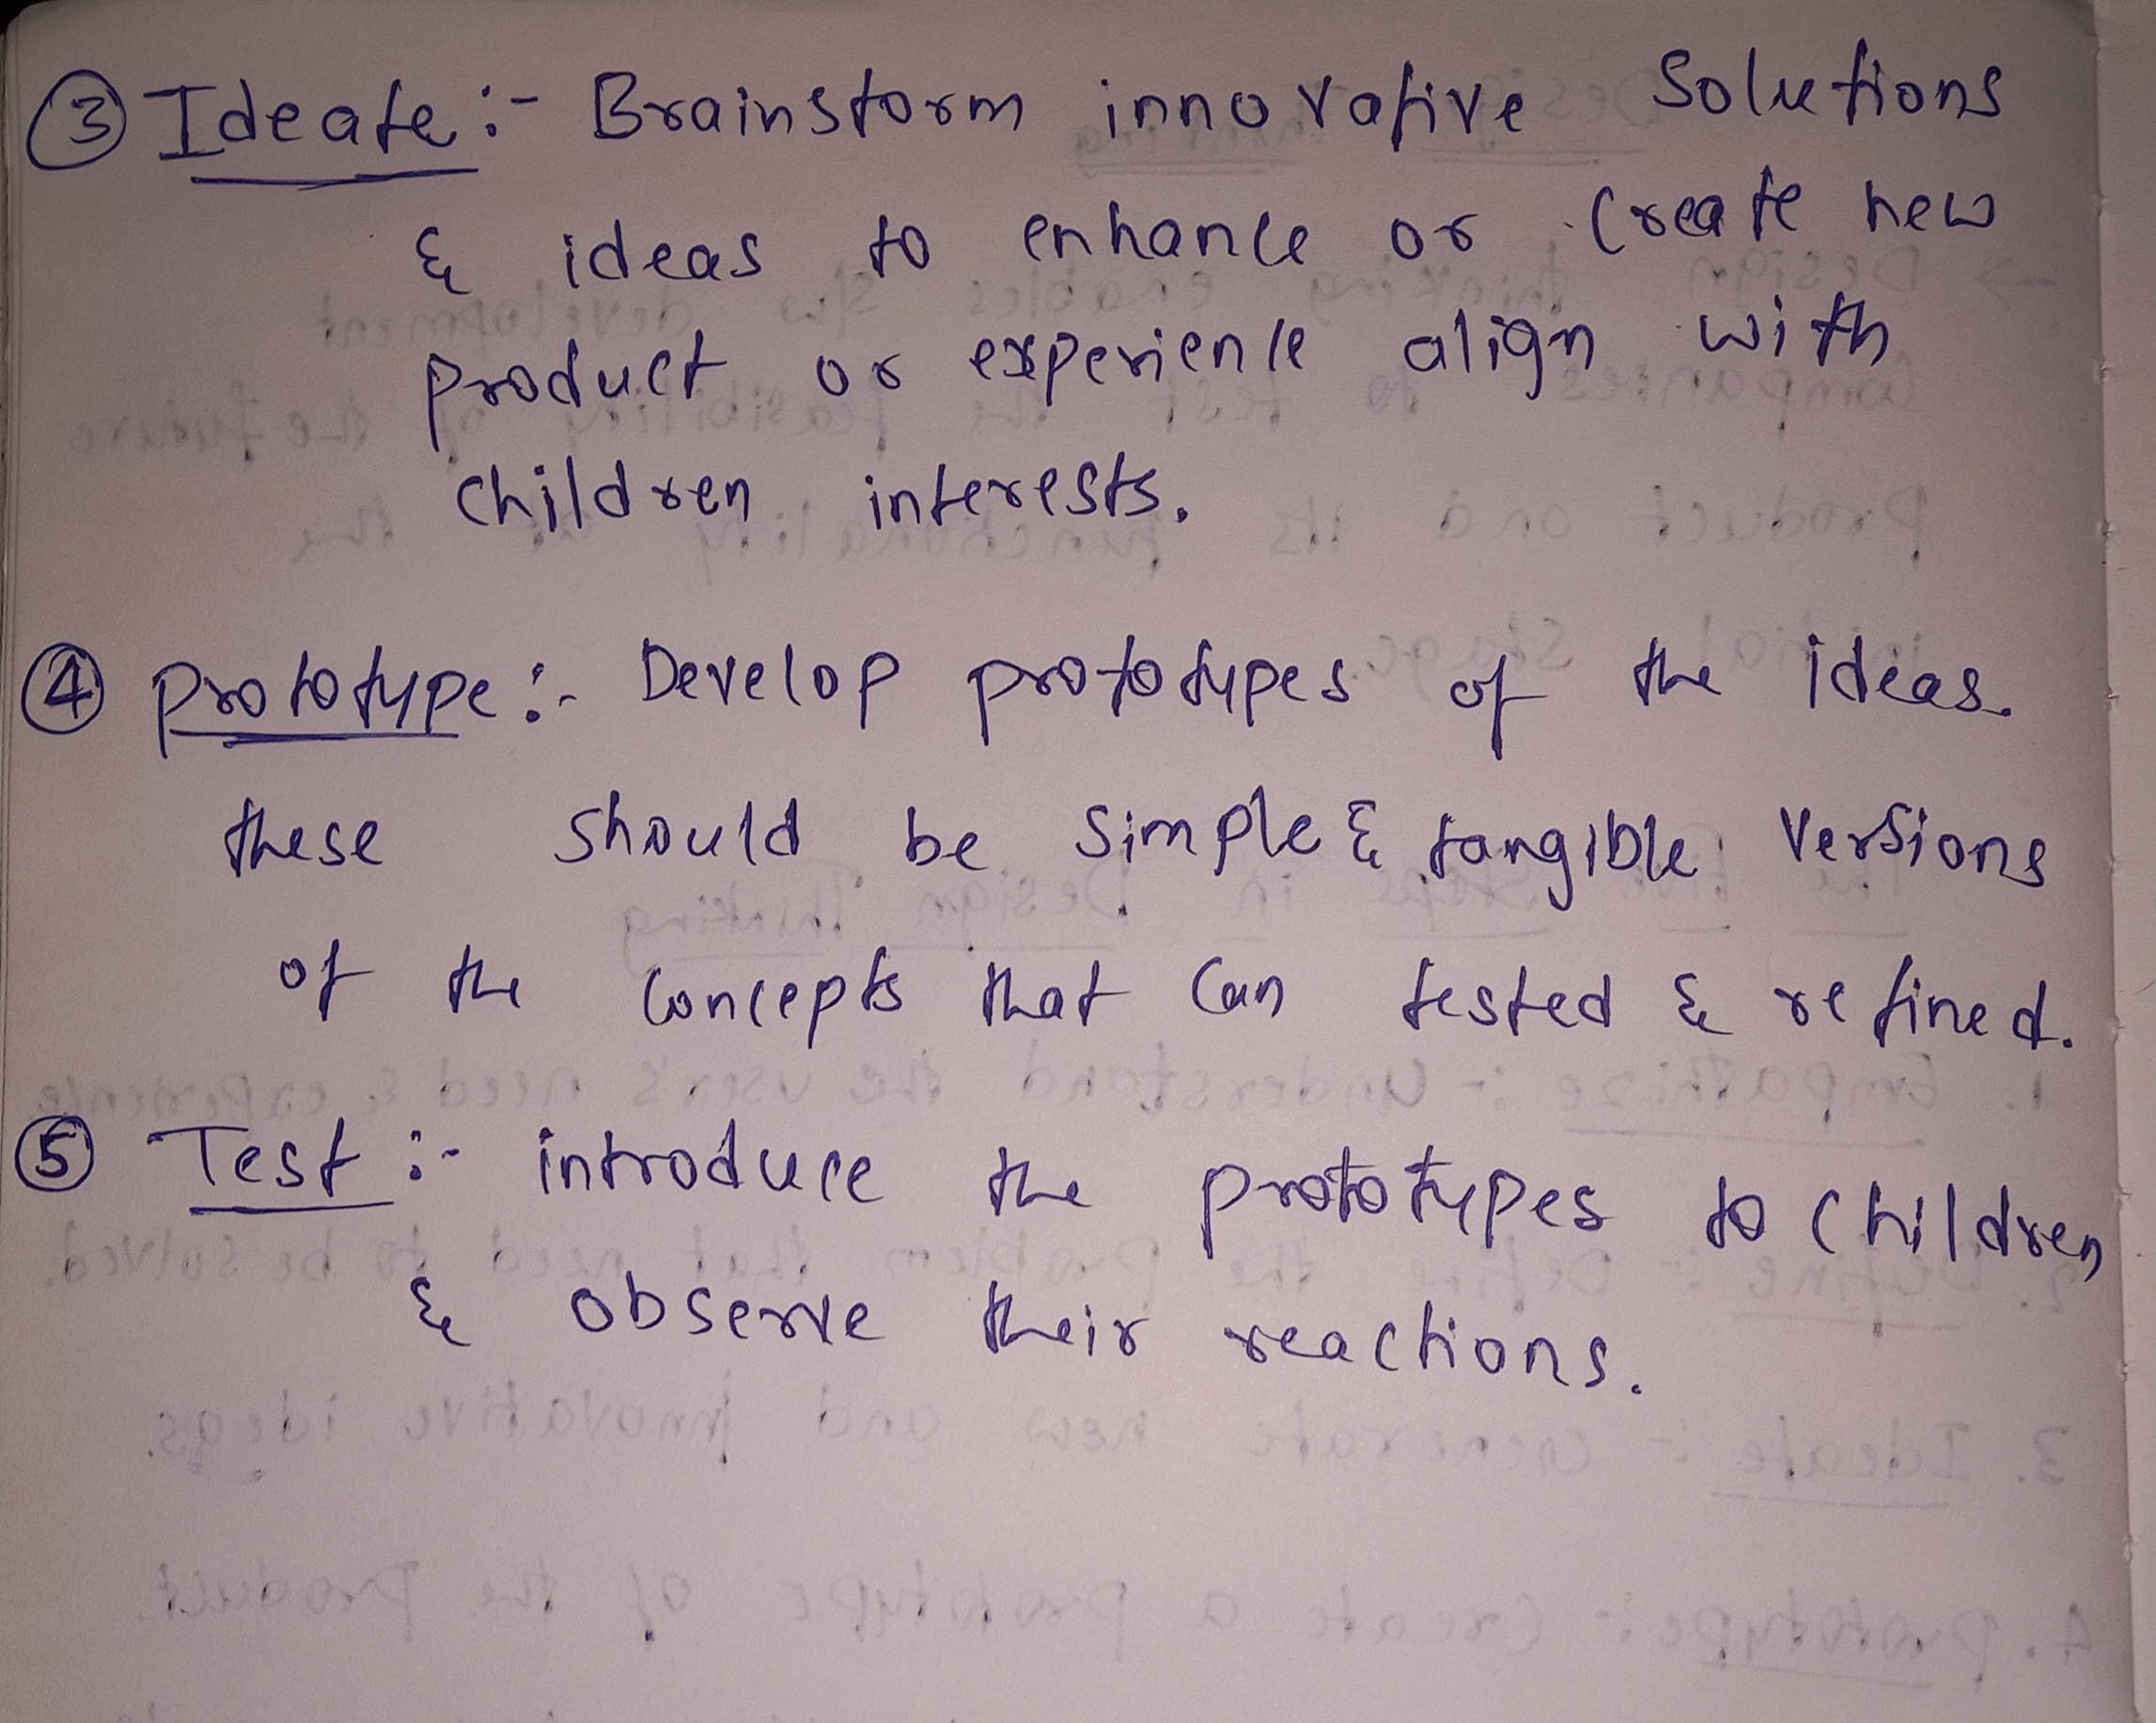 ③ Ideate :- Brainstorm innovative Solutions
& ideas to enhance or Create new
product or experience align with
children interests.
④ prototype :- Develop prototypes of the ideas.
these should be simple & tangible versions
of the concepts that can tested & refined.
⑤ Test :- introduce the prototypes to children
& observe their reactions.